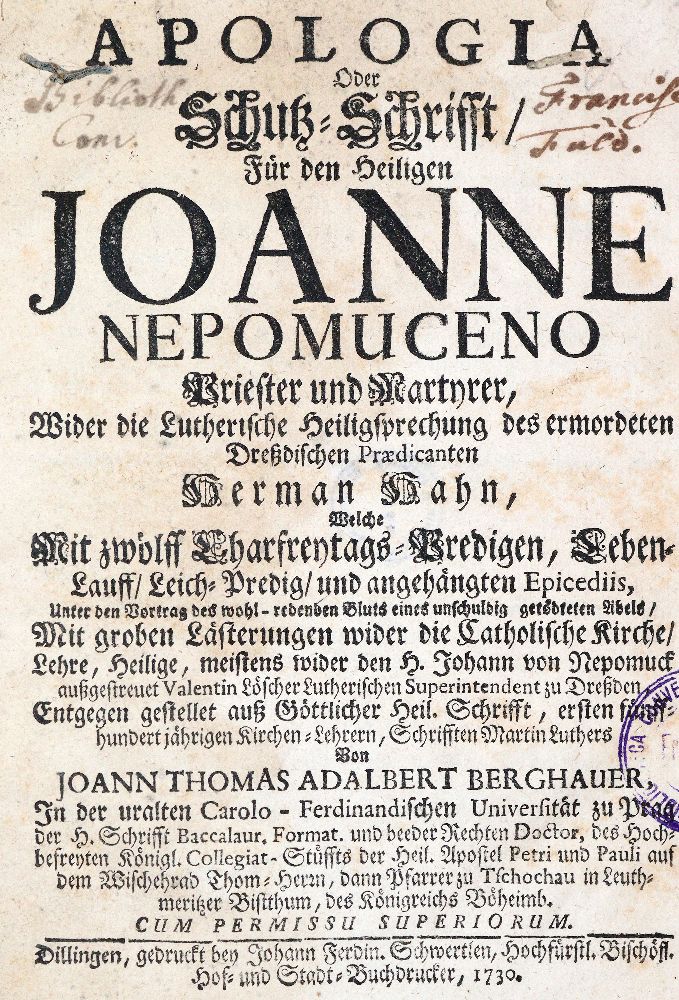 APOLOGIA
Oder
Schutz-Schrifft/
Biblioth. Francisc.
Conv. Fuld.
Für den Heiligen
JOANNE
NEPOMUCENO
Priester und Martyrer,
Wider die Lutherische Heiligsprechung des ermordeten
Dreßdischen Prædicanten
Herman Hahn,
Welche
Mit zwölff Charfreytags-Predigen, Leben-
Lauff/ Leich-Predig/ und angehängten Epicediis,
Unter den Vortrag des wohl-redenden Bluts eines unschuldig getödteten Abels/
Mit groben Lästerungen wider die Catholische Kirche/
Lehre, Heilige, meistens wider den H. Johann von Nepomuck
außgestreuet Valentin Löscher Lutherischen Superintendent zu Dreßden
Entgegen gestellet auß Göttlicher Heil. Schrifft, ersten fünff-
hundert jährigen Kirchen-Lehrern, Schrifften Martin Luthers
Von
JOANN THOMAS ADALBERT BERGHAUER,
In der uralten Carolo-Ferdinandischen Universität zu Prag
der H. Schrifft Baccalaur. Format. und beeder Rechten Doctor, des Hoch-
befreyten Königl. Collegiat-Stüffts der Heil. Apostel Petri und Pauli auf
dem Wischehrad Thom-Herrn, dann Pfarrer zu Tschochau in Leuth-
meritzer Bistthum, des Königreichs Böheimb.
CUM PERMISSU SUPERIORUM.
Dillingen, gedruckt bey Johann Ferdin. Schwertlen, Hochfürstl. Bischöfl.
Hof- und Stadt-Buchdrucker, 1730.